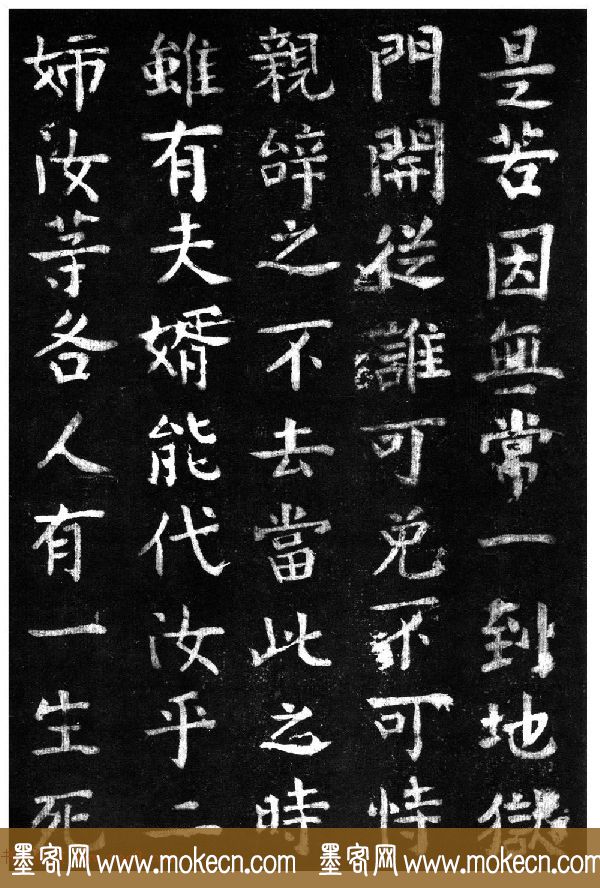 是苦因無常一到地獄
門開從誰可免不可恃
親辞之不去當此之時
雖有夫婿能代汝乎二
姊汝等各人有一生死
墨客网 www.mokecn.com 墨客网 www.mokecn.com